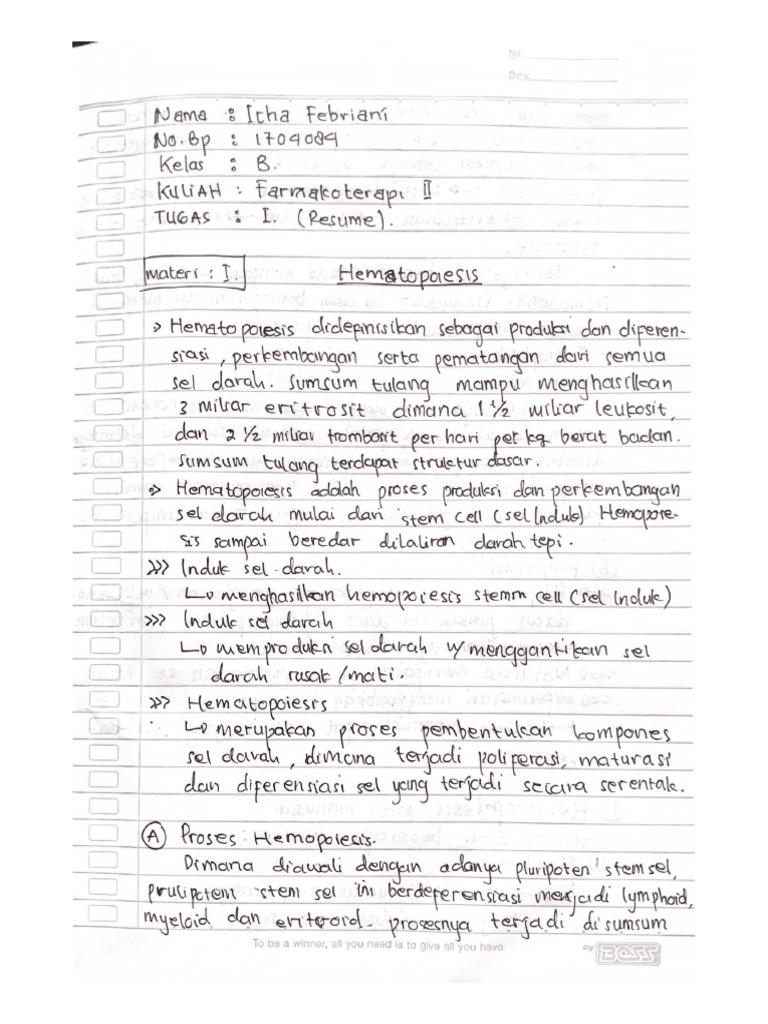 No.
Date:
Nama : Icha Febriani
No.Bp : 1704084
Kelas : B.
KULIAH : Farmakoterapi II
TUGAS : I. (Resume).
materi : I. Hematopoiesis
> Hematopoiesis didepinisikan sebagai produksi dan diperen-
siasi, perkembangan serta pematangan dari semua
sel darah. Sumsum tulang mampu menghasilkan
3 miliar eritrosit dimana 1 1/2 miliar leukosit,
dan 2 1/2 miliar trombosit per hari per kg berat badan.
Sumsum tulang terdapat struktur dasar.
> Hematopoiesis adalah proses produksi dan perkembangan
sel darah mulai dari stem cell (sel Induk) Hemopoie-
sis sampai beredar dilaliran darah tepi.
>>> Induk sel darah.
↳ menghasilkan hemopoiesis stemm cell (sel Induk)
>>> Induk sel darah
↳ memproduksi sel darah u/ menggantikan sel
darah rusak/mati.
>>> Hematopoiesis
↳ merupakan proses pembentukan kompones
sel darah, dimana terjadi poliferasi, maturasi
dan diferensiasi sel yang terjadi secara serentak.
(A) Proses Hemopoiesis.
Dimana diawali dengan adanya pluripoten stem sel,
prulipotem stem sel ini berdeferensiasi menjadi lymphoid,
myeloid dan eritroid. prosesnya terjadi di sumsum
To be a winner, all you need is to give all you have
By BOSS